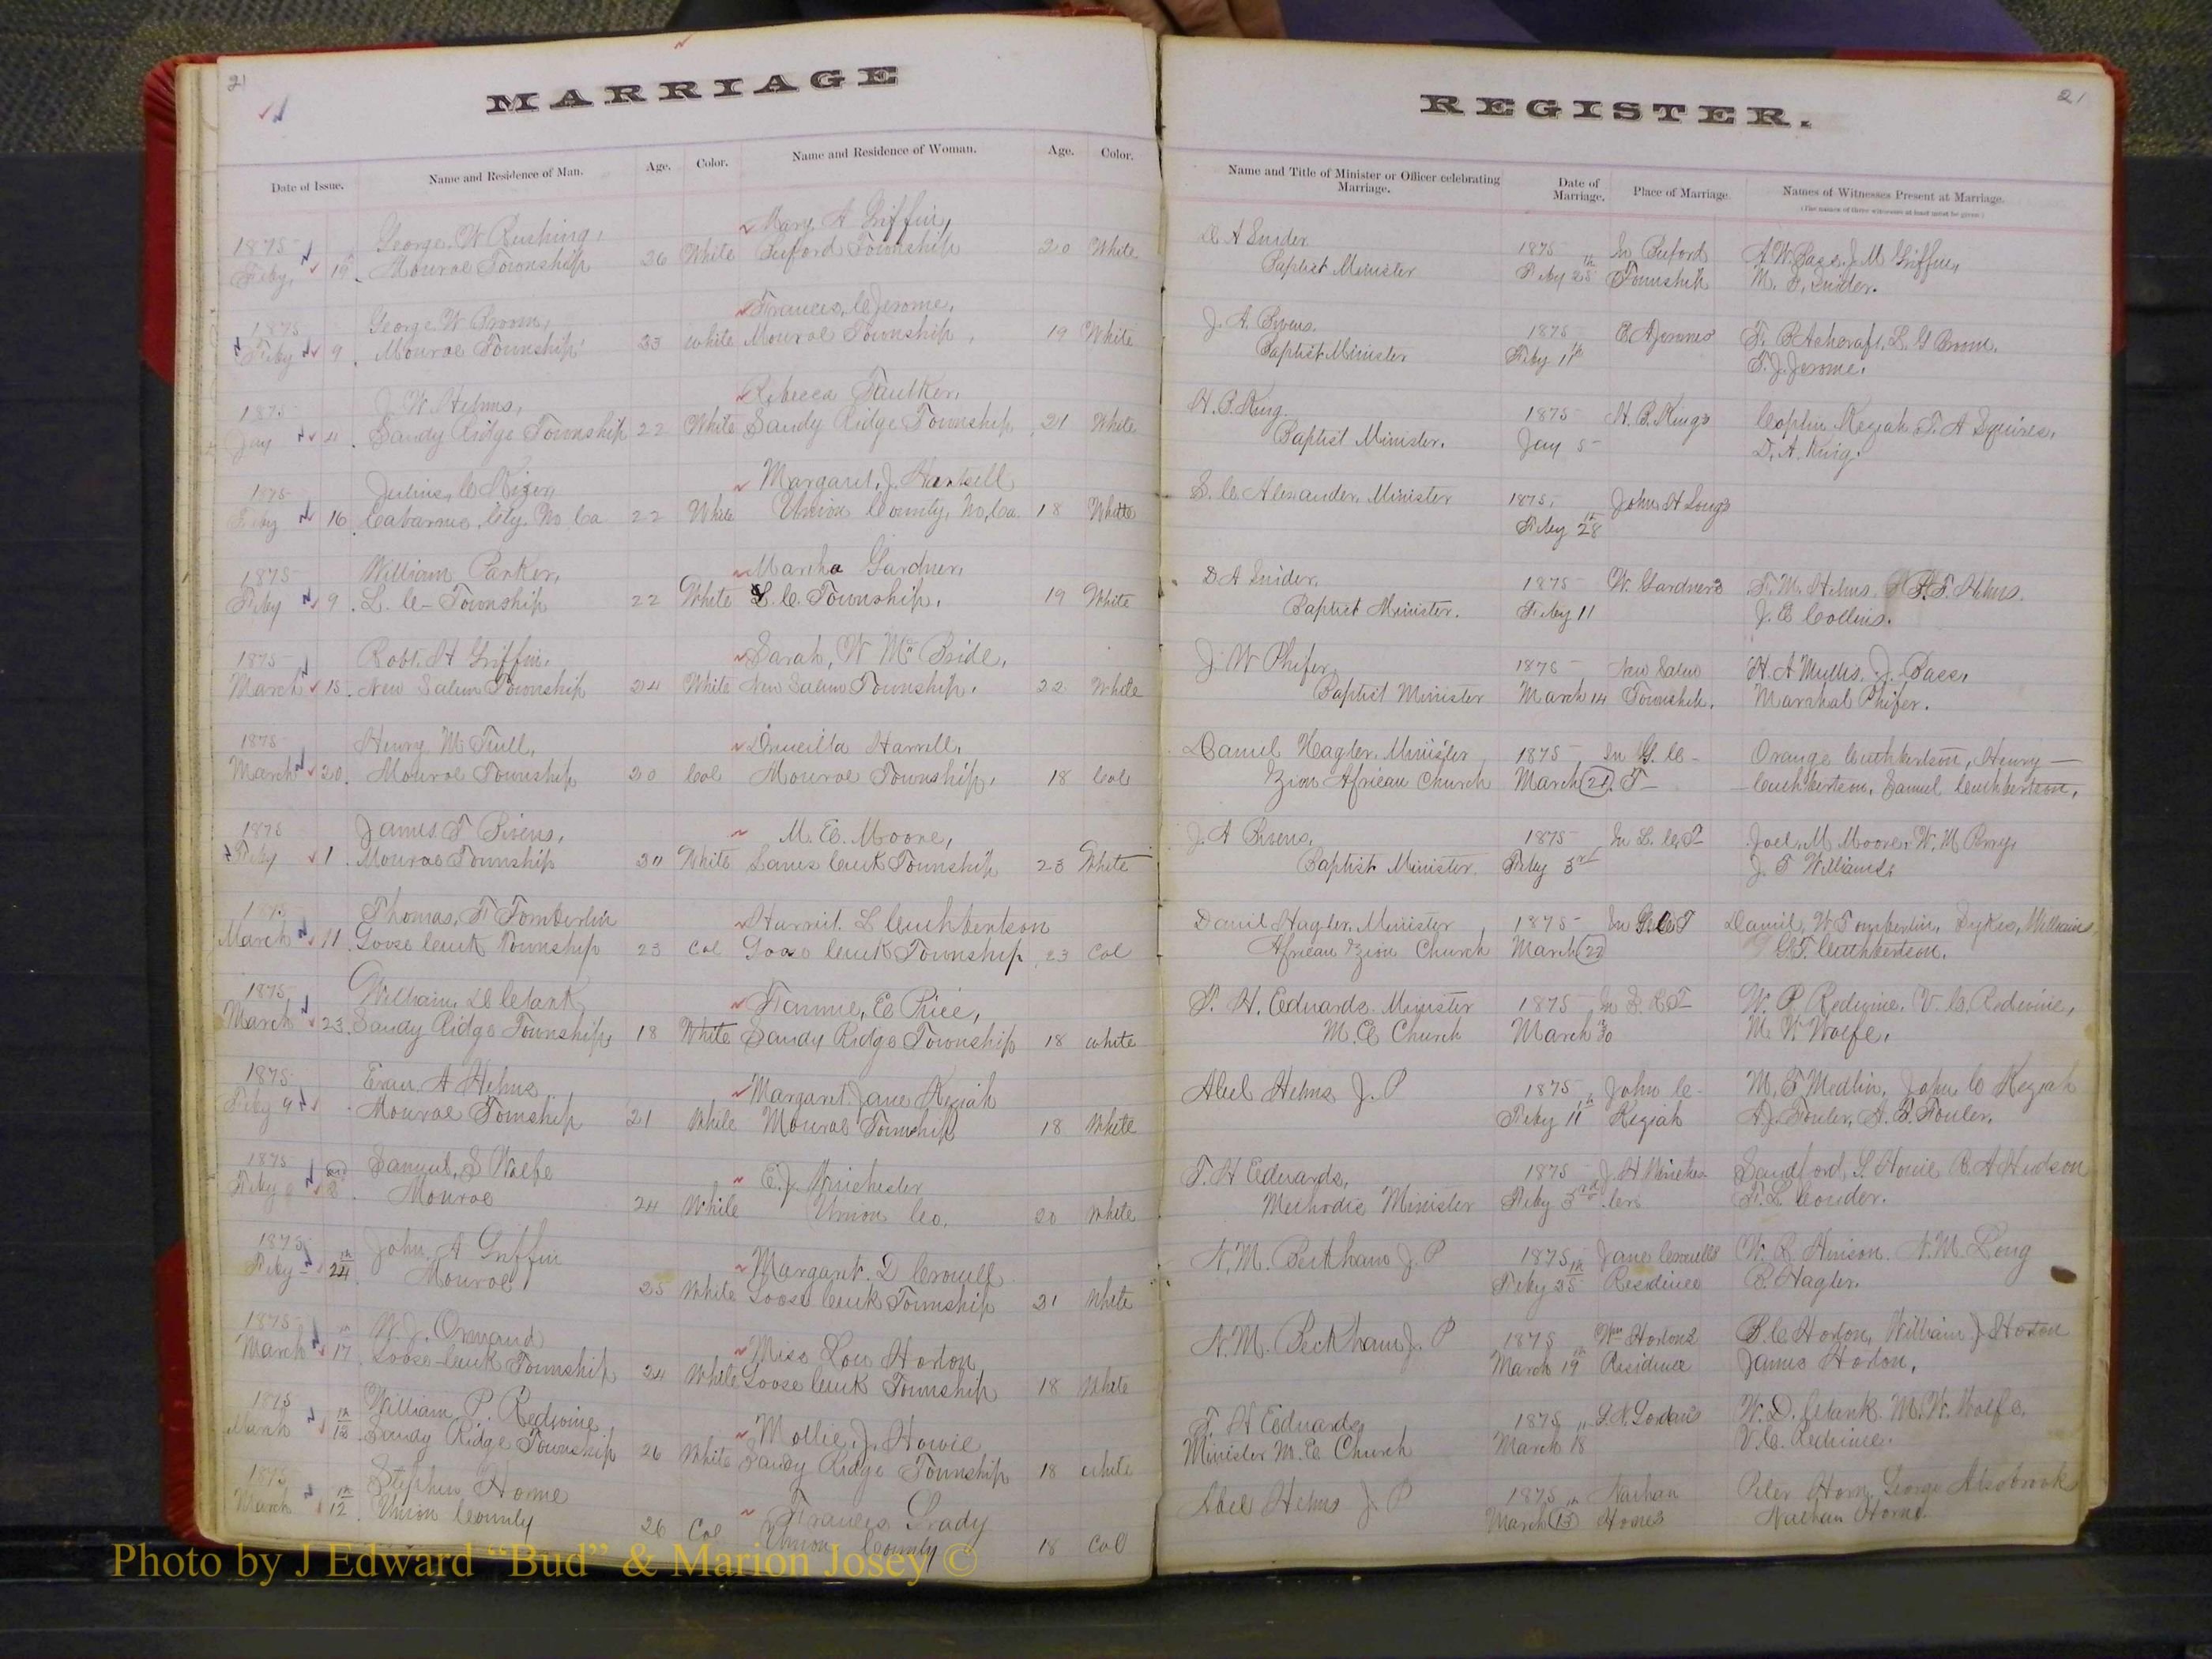 21
MARRIAGE
Date of Issue. Name and Residence of Man. Age. Color. Name and Residence of Woman. Age. Color.
1875 George W Rushing, Mary A Griffin,
Feby, 19 Monroe Township 26 White Buford Township 20 White
1875 George W Broom, Frances, C Jerome,
Feby 9 Monroe Township 23 white Monroe Township, 19 White
1875 J W Helms, Rebecca Faulker,
Jay 4 Sandy Ridge Township 22 White Sandy Ridge Township, 21 White
1875 Julius, C Margaret, J. Hartsell
Feby 16 Cabarrus, Cty. No Ca 22 White Union County, No, Ca. 18 White
1875 William Parker, Martha Gardner,
Feby 9. L. C- Township 22 White L. C. Township, 19 White
1875 Robt. H Griffin, Sarah, W Mc Bride,
March 15. New Salem Township 24 White New Salem Township, 22 White
1875 Henry M Tull, Drucilla Harrell,
March 20. Monroe Township 20 Col Monroe Township, 18 Col
1875 James T Bivens, M. E. Moore,
Feby 1. Monroe Township White Lanes Creek Township 23 White
1875 Thomas, F Tomberlin Harriet. L Cuthbertson
March 11. Goose Creek Township 23 Col Goose Creek Township 23 Col
1875 William, D Clark Fannie, E Price,
March 23. Sandy Ridge Township, 18 White Sandy Ridge Township 18 white
1875 Evan A Helms Margaret Jane Keziah
Feby 9 Monroe Township 21 White Monroe Township 18 White
1875 Samuel, S Wolfe E. J. Winchester
Feby 2 Monroe 24 White Union Co. 20 White
1875 John A Griffin Margaret. D Crowell
Feby 24th Monroe 25 White Goose Creek Township 21 White
1875 W. J. Ormand Miss Lou Horton
March 17th Goose Creek Township 24 White Goose Creek Township 18 White
1875 William P. Redwine Mollie, J. Howie
March 18th Sandy Ridge Township 26 White Sandy Ridge Township 18 white
1875 Stephen Horne Frances Grady
March 12th Union County 26 Col Union County 18 Col
21
REGISTER.
Name and Title of Minister or Officer celebrating Marriage. Date of Marriage. Place of Marriage. Names of Witnesses Present at Marriage.
(The names of three witnesses at least must be given)
D A Snider 1875 In Buford A. W. Bass. J. M Griffin,
Baptist Minister Feby 25th Township M. F. Snider.
J. A. Bivens. 1875 E A Jeromes F. B Ashcraft, L. G Broom.
Baptist Minister. Feby 11th T. J. Jerome.
H. B. King. 1875 H. B. Kings Coplin Keziah T. A Squires.
Baptist Minister. Jay 5 D. A. King.
S. C. Alexander. Minister 1875, John H Longs
Feby 28th
D A Snider, 1875 W. Gardners F. M. Helms. F. Helms.
Baptist Minister. Feby 11 J. E Collins.
J. W Phifer, 1875 New Salem H. A Mullis. J. Bass,
Baptist Minister March 14 Township. Marshal Phifer.
Daniel Hagler. Minister 1875 In G. C- Orange Cuthbertson, Henry —
Zion African Church March 21. T- Cuthbertson, Samuel Cuthbertson.
J. A Bivens, 1875 In L. C. T Joel. M Moore. W. M Perry,
Baptist Minister. Feby 3rd J. T Williams,
Daniel Hagler. Minister 1875 In G. C T Daniel, W Tomberlin, Dykes, Williams
African Zion Church March 22 G. T. Cuthbertson.
T. H. Edwards. Minister 1875 In S R T W. P Redwine. V. C. Redwine,
M. E Church March 30 M. W. Wolfe.
Abel Helms J. P 1875 John C. M. F Medlin. John C Keziah
Feby 11th Keziah A. J. Fowler. A. B. Fowler.
T. H Edwards, 1875 J. H Winches- Sandford, L Howie R. A Hudson
Methodis Minister Feby 3rd ters F. L Conder.
N. M. Beckham J. P 1875 Jane Crowells W. R Hinson. N. M. Long
Feby 25th Residence B. Hagler.
N. M. Beckham J. P 1875 Wm Hortons B. C Horton, William J. Horton
March 19th Residence James Horton.
T. H Edwards 1875 W. D. Clark. M. W. Wolfe
Minister M. E Church March 18 V. C. Redwine.
Abel Helms J. P 1875 Nathan Peter Horn George Alsobrook
March 13th Hornes Nathan Horne.
Photo by J Edward “Bud” & Marion Josey ©